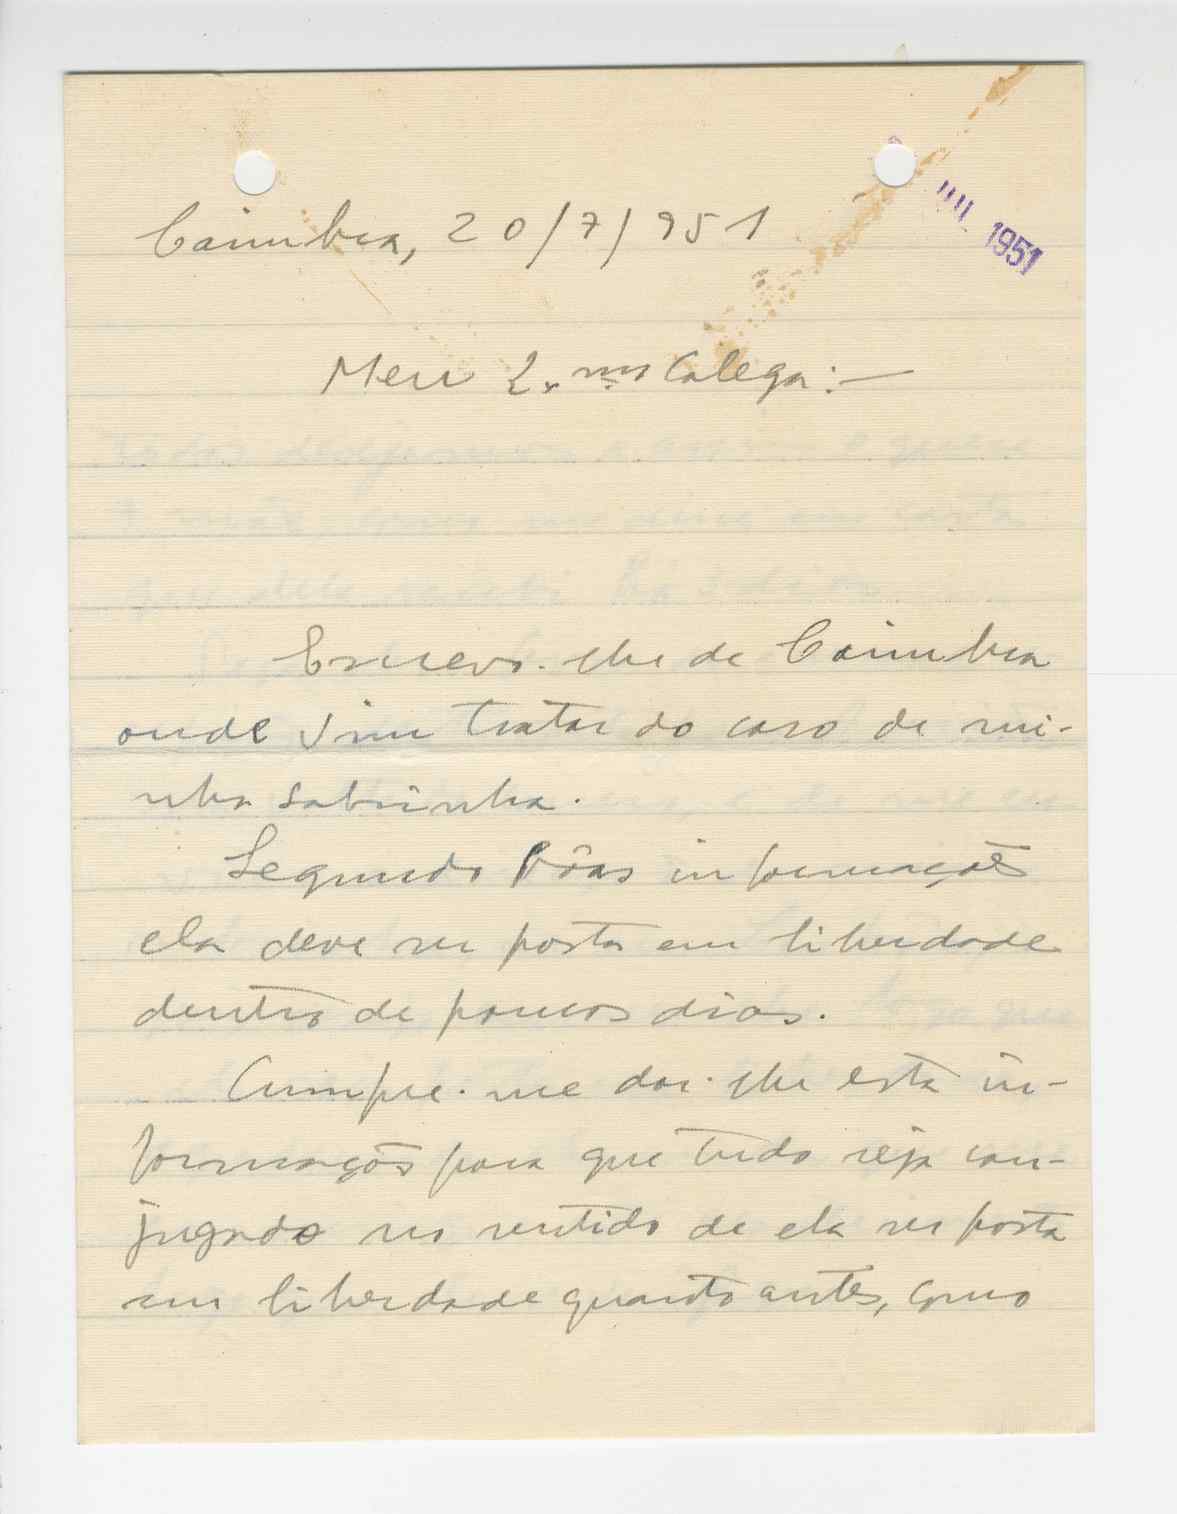 JUL. 1951
Coimbra, 20/7/951
Meu Ex.mo Colega:—
Escrevo-lhe de Coimbra
onde vim tratar do caso de mi-
nha sobrinha.
Segundo bôas informações
ela deve ser posta em liberdade
dentro de poucos dias.
Cumpre-me dar-lhe esta in-
formação para que tudo seja con-
jugado no sentido de ela ser posta
em liberdade quanto antes, como